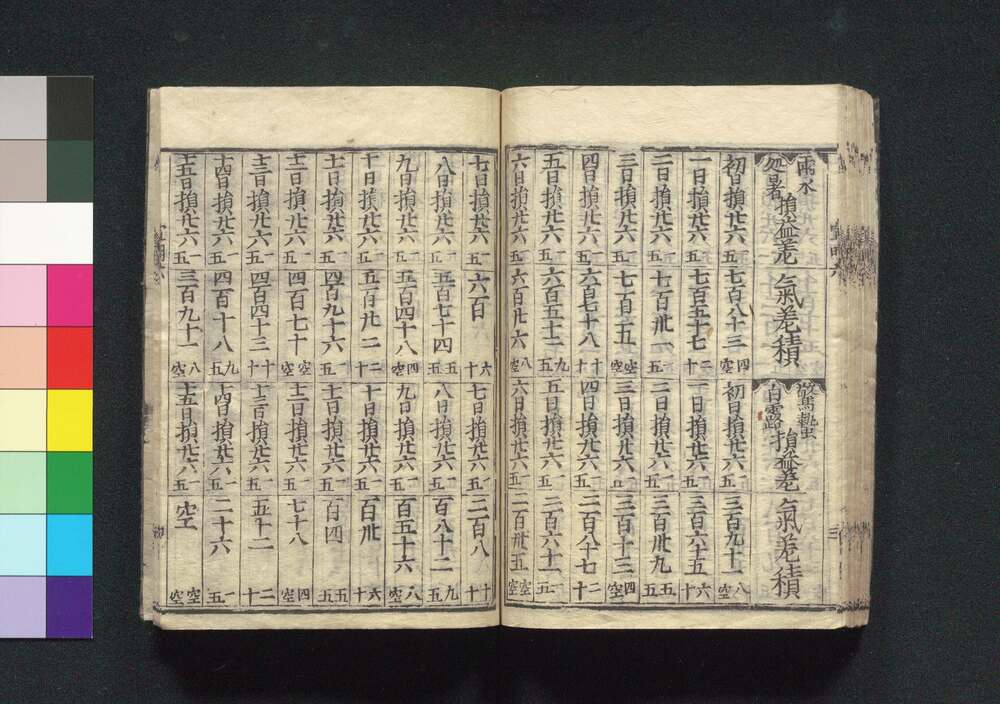 雨水
処暑
損益差
氣差積
驚蟄
白露
損益差
氣差積
初日損廿六 一五 七百八十三 四空 初日損廿六 一五 三百九十一 八空
一日損廿六 一五 七百五十七 二十 一日損廿六 一五 三百六十五 六十
二日損廿六 一五 七百卅一 一五 二日損廿六 一五 三百卅九 五五
三日損廿六 一五 七百五 空空 三日損廿六 一五 三百十三 四空
四日損廿六 一五 六百七十八 十十 四日損廿六 一五 二百八十七 二十
五日損廿六 一五 六百五十二 九五 五日損廿六 一五 二百六十一 一五
六日損廿六 一五 六百廿六 八空 六日損廿六 一五 二百卅五 空空
七日損廿六 一五 六百 六十 七日損廿六 一五 二百八 十十
八日損廿六 一五 五百七十四 五五 八日損廿六 一五 百八十二 九五
九日損廿六 一五 五百四十八 四空 九日損廿六 一五 百五十六 八空
十日損廿六 一五 五百廿二 二十 十日損廿六 一五 百卅 六十
十一日損廿六 一五 四百九十六 一五 十一日損廿六 一五 百四 五五
十二日損廿六 一五 四百七十 空空 十二日損廿六 一五 七十八 四空
十三日損廿六 一五 四百四十三 十十 十三日損廿六 一五 五十二 二十
十四日損廿六 一五 四百十八 九五 十四日損廿六 一五 二十六 一五
十五日損廿六 一五 三百九十一 八空 十五日損廿六 一五 空 空空